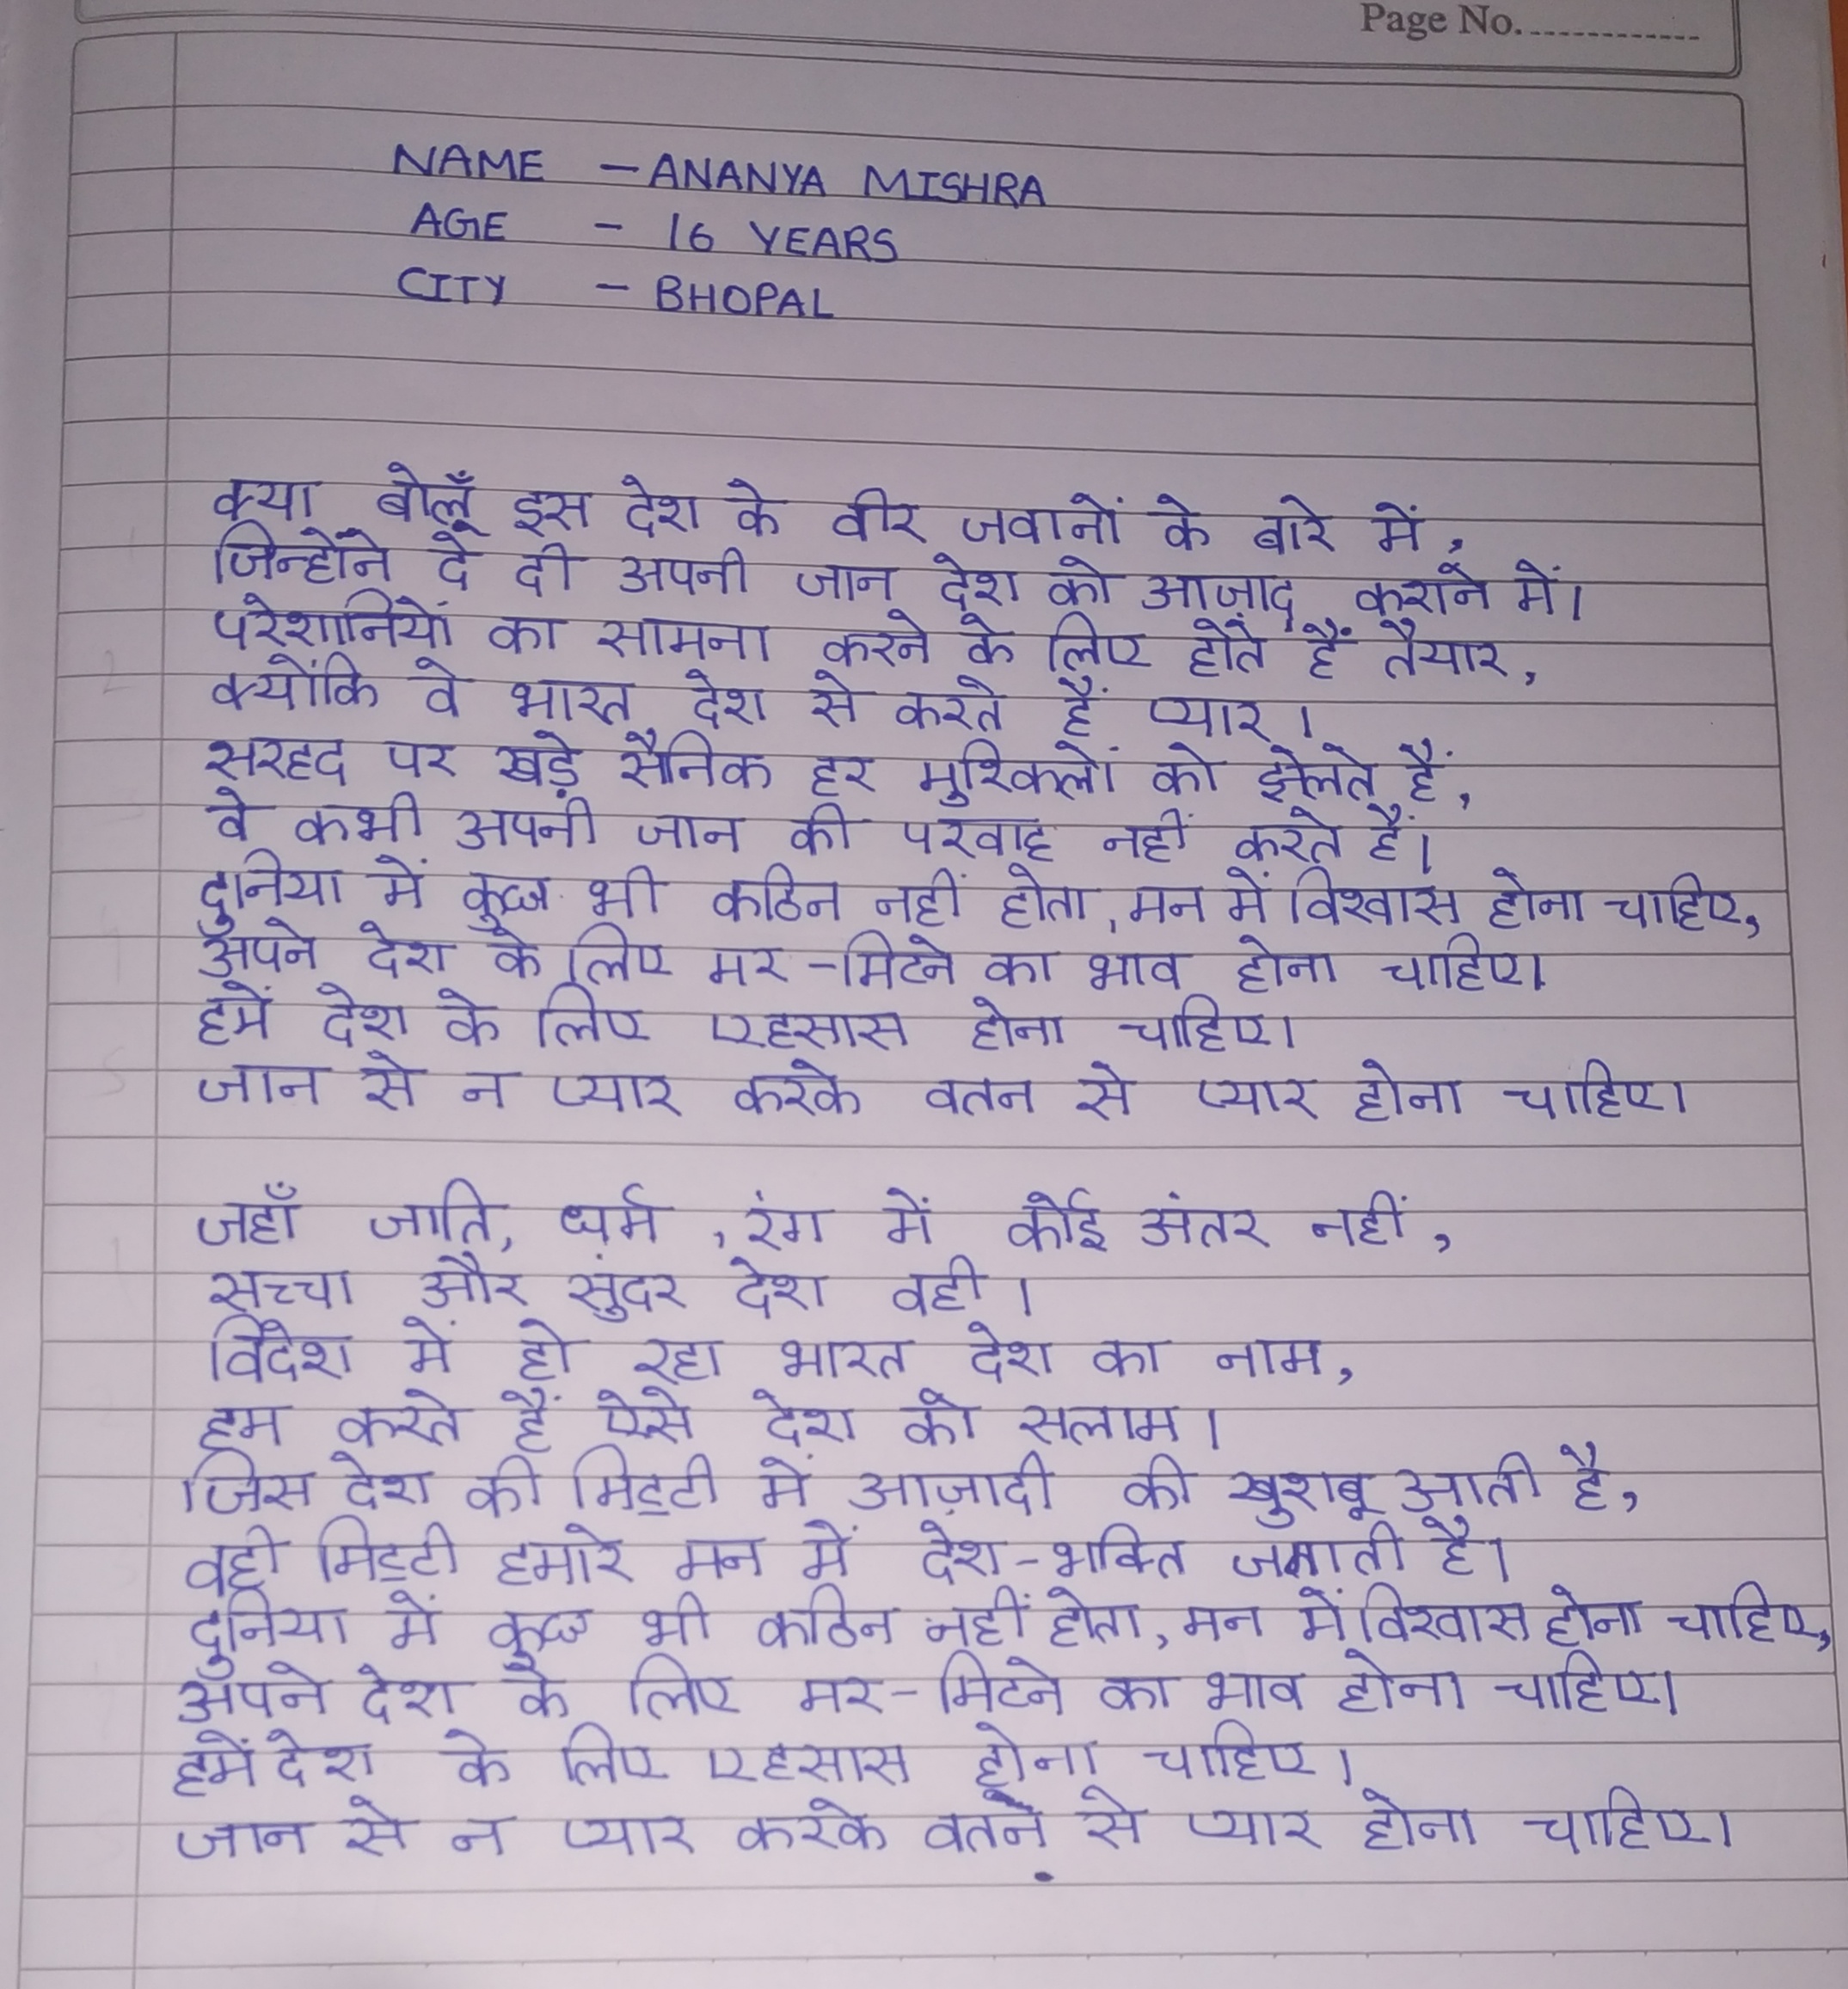 Page No.
NAME - ANANYA MISHRA
AGE - 16 YEARS
CITY - BHOPAL
क्या बोलूँ इस देश के वीर जवानों के बारे में,
जिन्होंने दे दी अपनी जान देश को आज़ाद कराने में।
परेशानियों का सामना करने के लिए होते हैं तैयार,
क्योंकि वे भारत देश से करते हैं प्यार।
सरहद पर खड़े सैनिक हर मुश्किलों को झेलते हैं,
वे कभी अपनी जान की परवाह नहीं करते हैं।
दुनिया में कुछ भी कठिन नहीं होता, मन में विश्वास होना चाहिए,
अपने देश के लिए मर-मिटने का भाव होना चाहिए।
हमें देश के लिए एहसास होना चाहिए।
जान से न प्यार करके वतन से प्यार होना चाहिए।
जहाँ जाति, धर्म, रंग में कोई अंतर नहीं,
सच्चा और सुंदर देश वही।
विदेश में हो रहा भारत देश का नाम,
हम करते हैं ऐसे देश को सलाम।
जिस देश की मिट्टी में आज़ादी की खुशबू आती है,
वही मिट्टी हमारे मन में देश-भक्ति जगाती है।
दुनिया में कुछ भी कठिन नहीं होता, मन में विश्वास होना चाहिए,
अपने देश के लिए मर-मिटने का भाव होना चाहिए।
हमें देश के लिए एहसास होना चाहिए।
जान से न प्यार करके वतन से प्यार होना चाहिए।